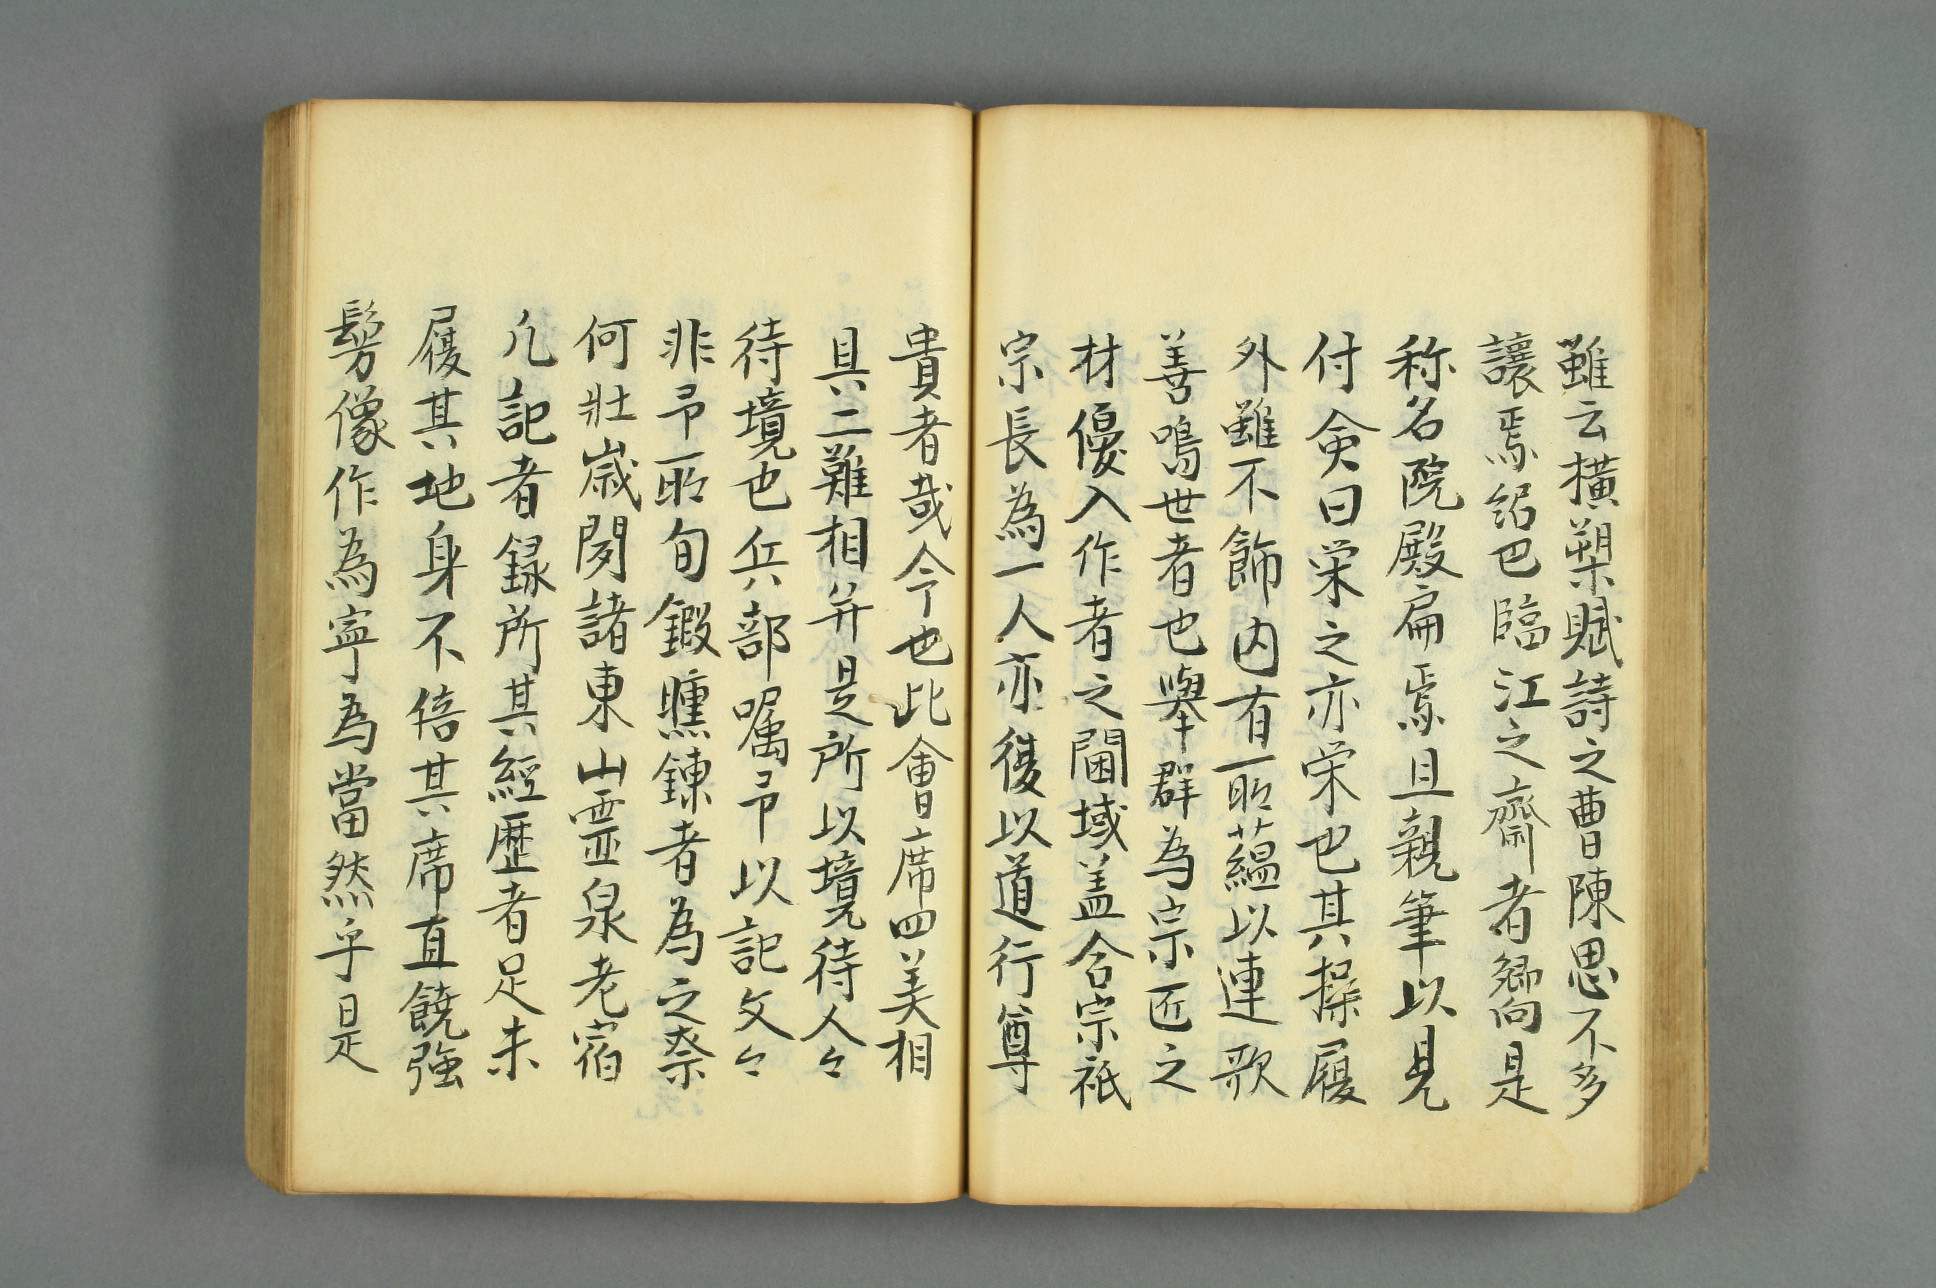 雖云橫槊賦詩之曹陳思不多
讓焉紹巴臨江之齋者嚮是
称名院殿扁焉且親筆以見
付僉曰栄之亦栄也其操履
外雖不飾内有所蘊以連歌
善鳴世者也舉群為宗匠之
材優入作者之閫域盖含宗祇
宗長為一人亦復以道行尊
貴者哉今也此會席四美相
具二難相并是所以境待人々
待境也兵部嘱予以記文々
非予所旬鍜㷱錬者為之祭
何壯歳閱諸東山霊泉老宿
凡記者録所其經歷者足未
履其地身不倍其席直饒強
髣像作為寧為當然乎是